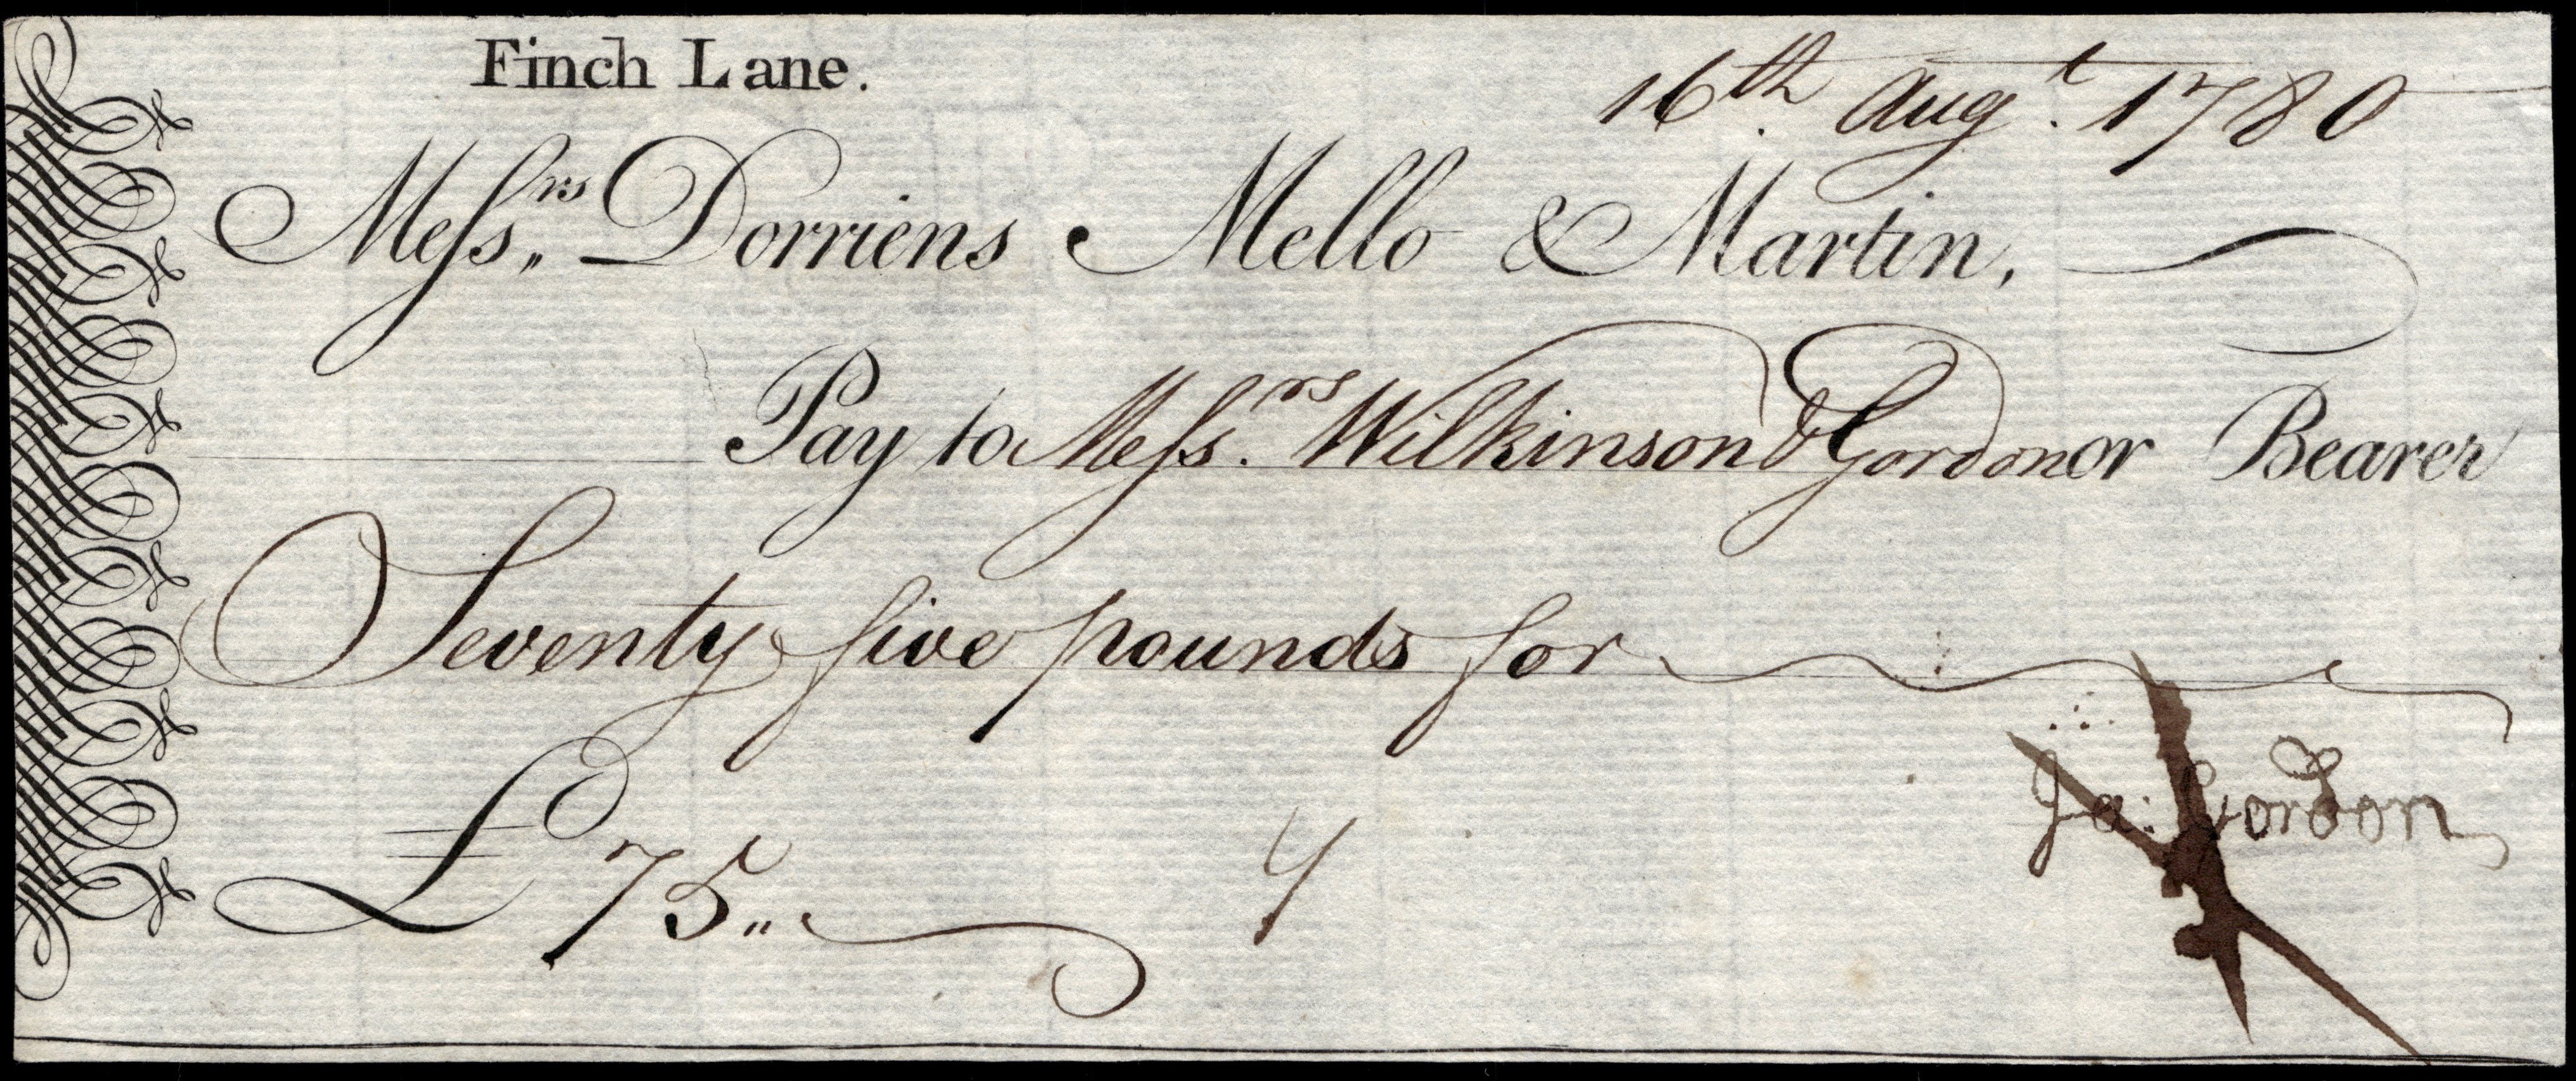 Finch Lane.
16th. Augt. 1780
Meſsrs. Dorriens Mello & Martin,
Pay to Meſsrs. Wilkinson & Gordon or Bearer
Seventy five pounds for
£75„
Ja: Gordon